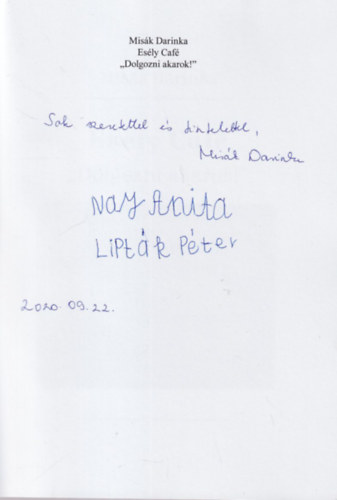 Misák Darinka
Esély Café
„Dolgozni akarok!”
Sok szeretettel és tisztelettel,
Misák Darinka
Nay Anita
LiPták Péter
2020. 09. 22.